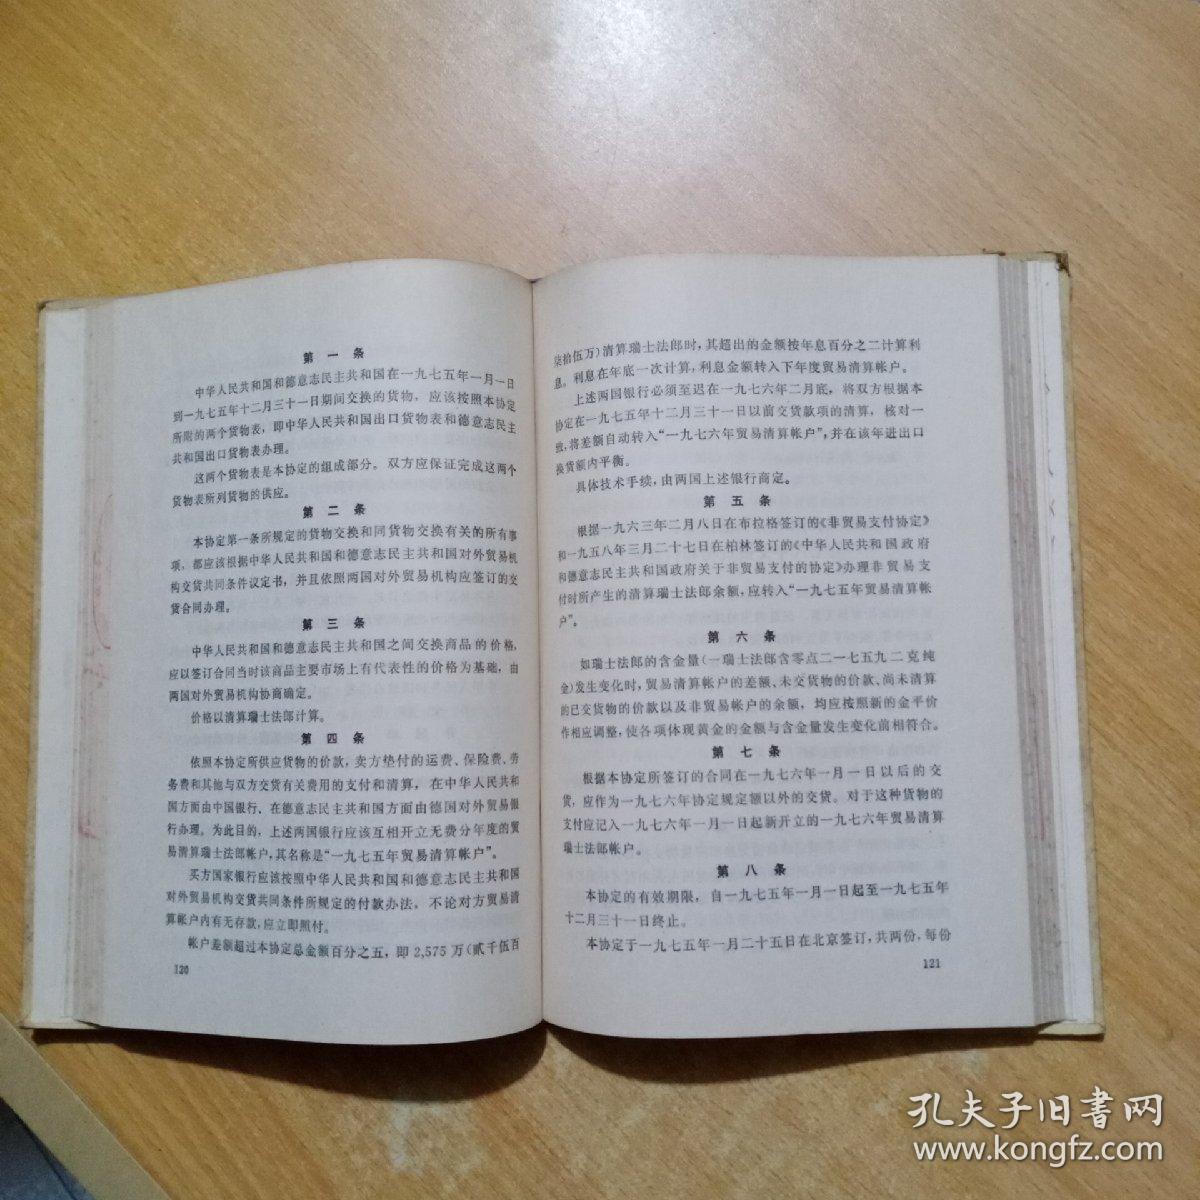 第一条
中华人民共和国和德意志民主共和国在一九七五年一月一日
到一九七五年十二月三十一日期间交换的货物，应该按照本协定
所附的两个货物表，即中华人民共和国出口货物表和德意志民主
共和国出口货物表办理。
这两个货物表是本协定的组成部分。双方应保证完成这两个
货物表所列货物的供应。
第二条
本协定第一条所规定的货物交换和同货物交换有关的所有事
项，都应该根据中华人民共和国和德意志民主共和国对外贸易机
构交货共同条件议定书，并且依照两国对外贸易机构应签订的交
货合同办理。
第三条
中华人民共和国和德意志民主共和国之间交换商品的价格，
应以签订合同当时该商品主要市场上有代表性的价格为基础，由
两国对外贸易机构协商确定。
价格以清算瑞士法郎计算。
第四条
依照本协定所供应货物的价款，卖方垫付的运费、保险费、劳
务费和其他与双方交货有关费用的支付和清算，在中华人民共和
国方面由中国银行、在德意志民主共和国方面由德国对外贸易银
行办理。为此目的，上述两国银行应该互相开立无费分年度的贸
易清算瑞士法郎帐户，其名称是“一九七五年贸易清算帐户”。
买方国家银行应该按照中华人民共和国和德意志民主共和国
对外贸易机构交货共同条件所规定的付款办法。不论对方贸易清
算帐户内有无存款，应立即照付。
帐户差额超过本协定总金额百分之五，即2,575万（贰千伍百
120
柒拾伍万）清算瑞士法郎时，其超出的金额按年息百分之二计算利
息。利息在年底一次计算，利息金额转入下年度贸易清算帐户。
上述两国银行必须至迟在一九七六年二月底，将双方根据本
协定在一九七五年十二月三十一日以前交货款项的清算，核对一
致，将差额自动转入“一九七六年贸易清算帐户”，并在该年进出口
换货额内平衡。
具体技术手续，由两国上述银行商定。
第五条
根据一九六三年二月八日在布拉格签订的《非贸易支付协定》
和一九五八年三月二十七日在柏林签订的《中华人民共和国政府
和德意志民主共和国政府关于非贸易支付的协定》办理非贸易支
付时所产生的清算瑞士法郎余额，应转入“一九七五年贸易清算帐
户”。
第六条
如瑞士法郎的含金量（一瑞士法郎含零点二一七五九二克纯
金）发生变化时，贸易清算帐户的差额、未交货物的价款、尚未清算
的已交货物的价款以及非贸易帐户的余额，均应按照新的金平价
作相应调整，使各项体现黄金的金额与含金量发生变化前相符合。
第七条
根据本协定所签订的合同在一九七六年一月一日以后的交
货，应作为一九七六年协定规定额以外的交货。对于这种货物的
支付应记入一九七六年一月一日起新开立的一九七六年贸易清算
瑞士法郎帐户。
第八条
本协定的有效期限，自一九七五年一月一日起至一九七五年
十二月三十一日终止。
本协定于一九七五年一月二十五日在北京签订，共两份，每份
121
孔夫子旧书网
www.kongfz.com